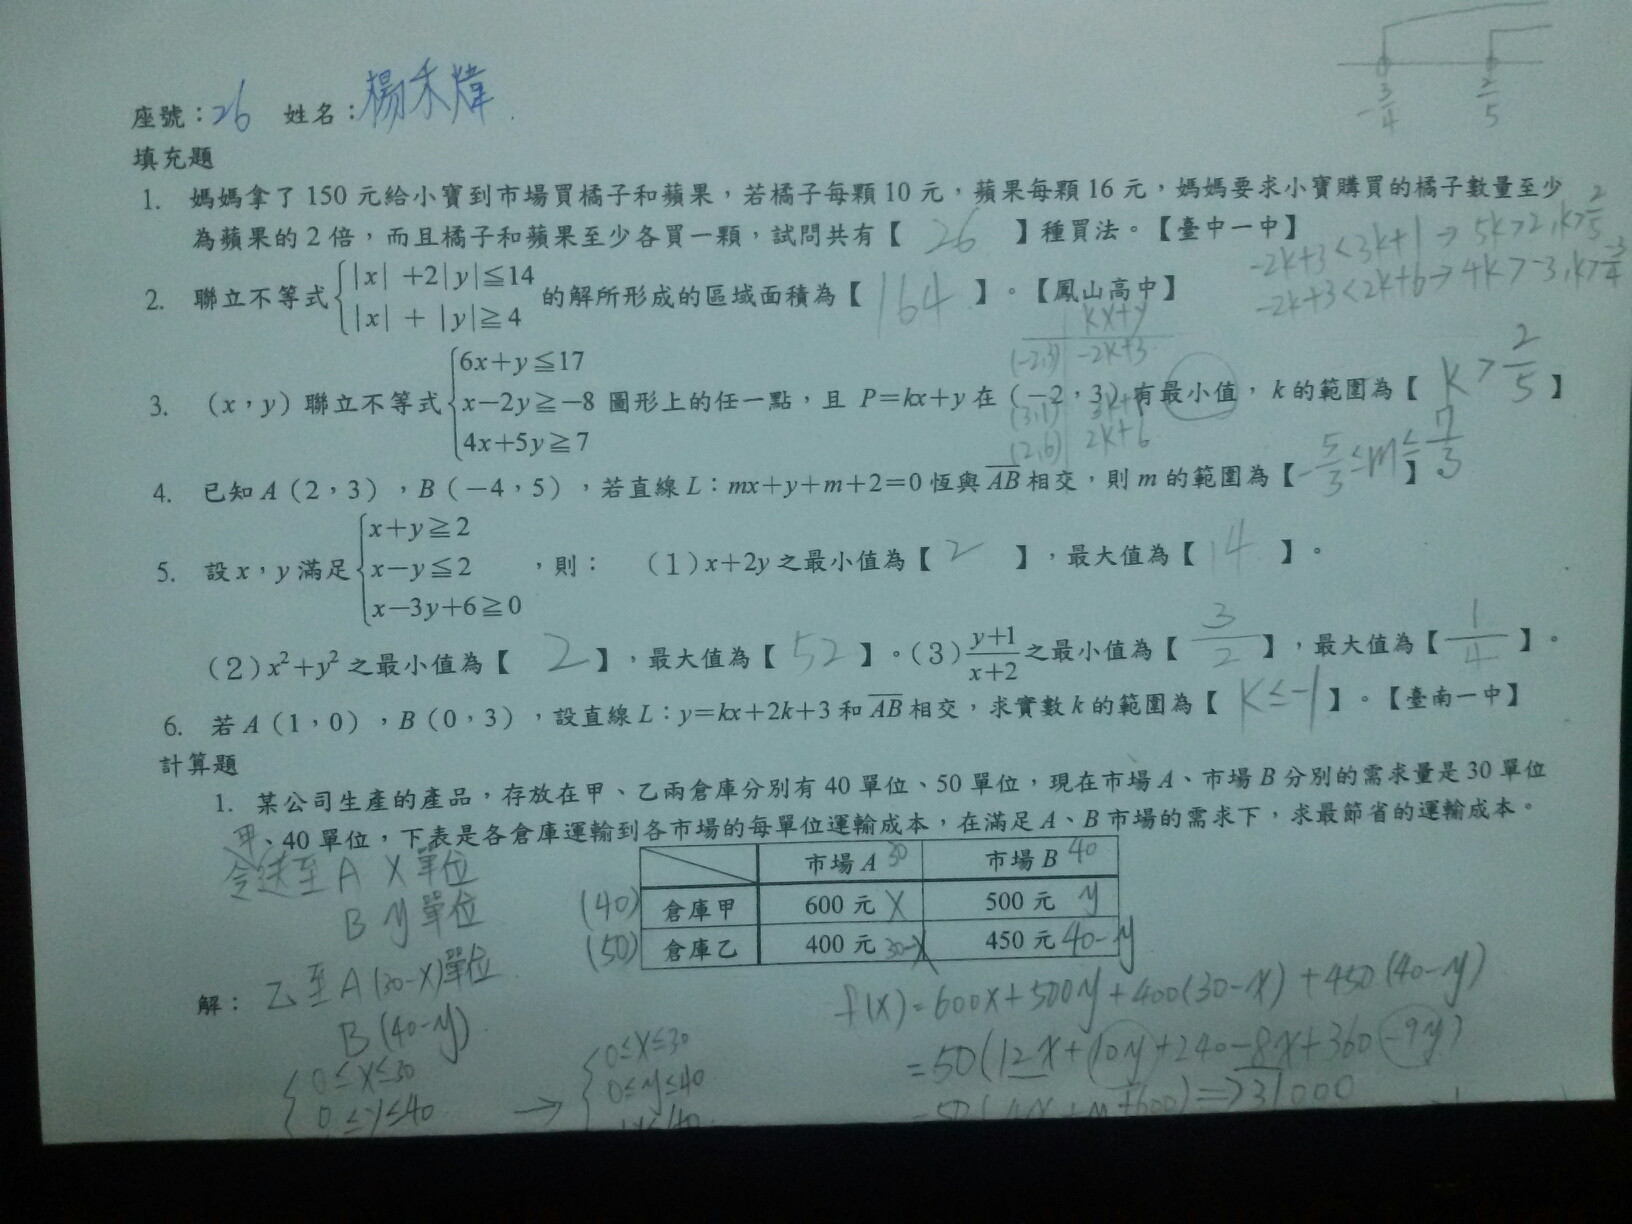 -3/4 2/5
座號：26 姓名：楊禾煒
填充題
1. 媽媽拿了 150 元給小寶到市場買橘子和蘋果，若橘子每顆 10 元，蘋果每顆 16 元，媽媽要求小寶購買的橘子數量至少
為蘋果的 2 倍，而且橘子和蘋果至少各買一顆，試問共有【 26 】種買法。【臺中一中】
-2k+3<3k+1→5k>2,k>2/5
-2k+3<2k+6→4k>-3,k>-3/4
2. 聯立不等式{|x|+2|y|≦14
|x|+|y|≧4 的解所形成的區域面積為【 164 】。【鳳山高中】
kx+y
(-2,3) -2k+3
(3,1) 3k+1
(2,6) 2k+6
3. （x，y）聯立不等式{6x+y≦17
x−2y≧−8 圖形上的任一點，且 P=kx+y 在（−2，3）有最小值，k 的範圍為【 k>2/5 】
4x+5y≧7
4. 已知 A（2，3），B（−4，5），若直線 L：mx+y+m+2=0 恆與 AB 相交，則 m 的範圍為【-5/3≤m≤7/3】
5. 設 x，y 滿足{x+y≧2
x−y≦2 ，則： （1）x+2y 之最小值為【 2 】，最大值為【 14 】。
x−3y+6≧0
（2）x²+y² 之最小值為【 2 】，最大值為【 52 】。（3）y+1/x+2 之最小值為【 3/2 】，最大值為【 1/4 】。
6. 若 A（1，0），B（0，3），設直線 L：y=kx+2k+3 和 AB 相交，求實數 k 的範圍為【 k≤-1 】。【臺南一中】
計算題
1. 某公司生產的產品，存放在甲、乙兩倉庫分別有 40 單位、50 單位，現在市場 A、市場 B 分別的需求量是 30 單位
、40 單位，下表是各倉庫運輸到各市場的每單位運輸成本，在滿足 A、B 市場的需求下，求最節省的運輸成本。
甲
令送至A X單位
B y單位
市場 A 30 市場 B 40
(40) 倉庫甲 600 元 X 500 元 y
(50) 倉庫乙 400 元 30-X 450 元 40-y
解： 乙至A(30-X)單位
B(40-y)
f(x)=600x+500y+400(30-x)+450(40-y)
=50(12x+10y+240-8x+360-9y)
=50(4x+y+600)=>31000
{0≤X≤30
0≤y≤40
→{0≤X≤30
0≤y≤40